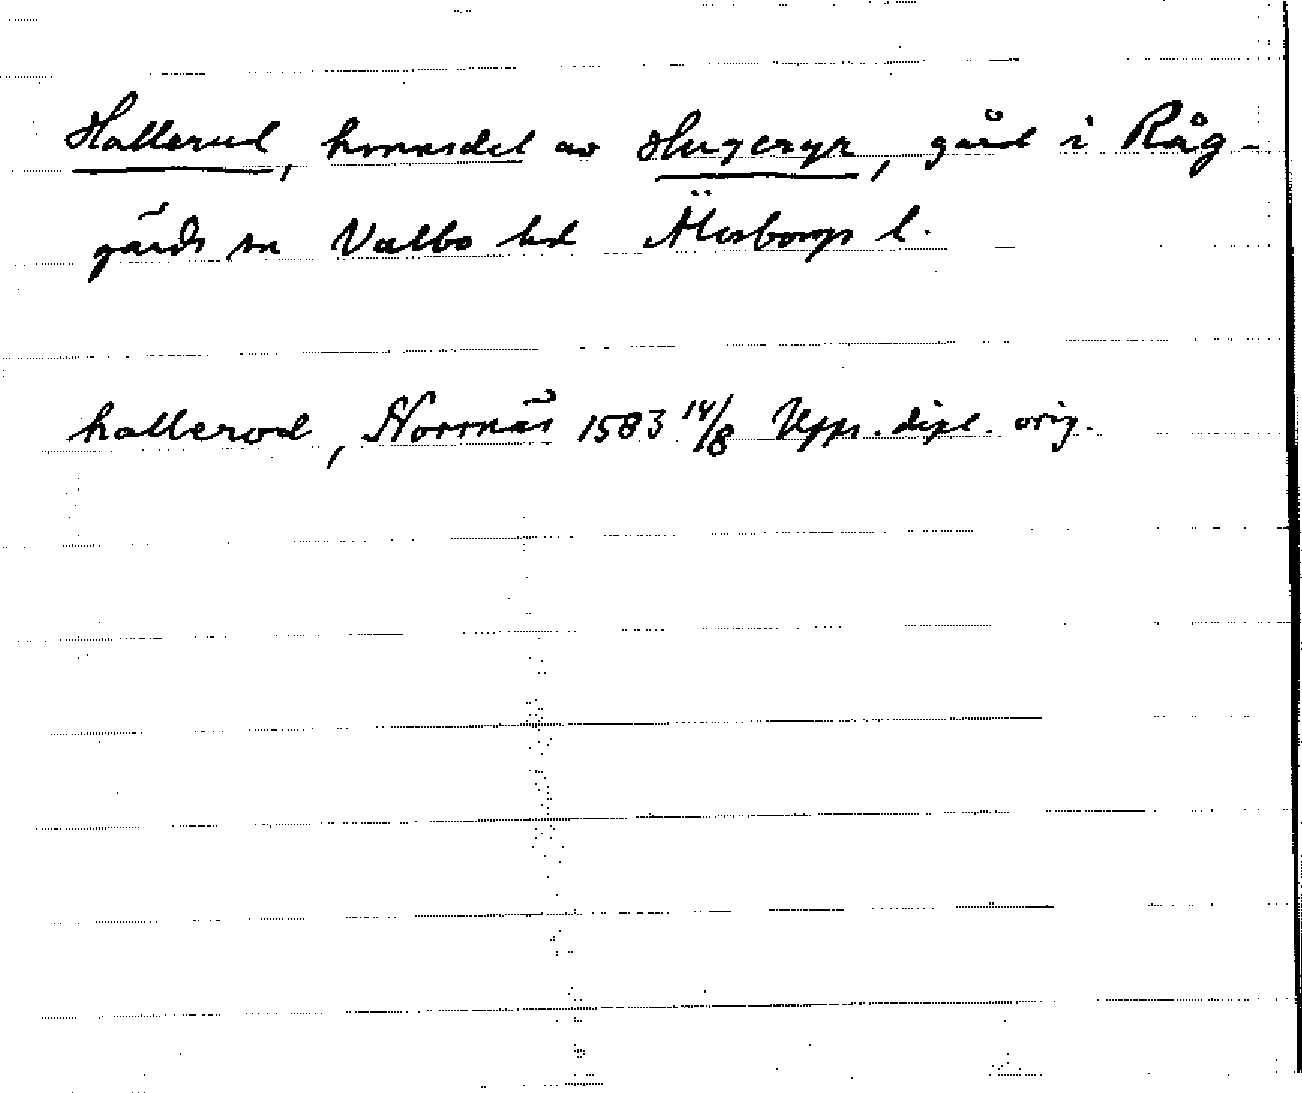 Hallerud, hemmansdel av Hugeryr, gård i Råg-
gärds sn Valbo hd Älvsborgs l.
hallerod, Norrnäs 1583 14/8 Upps. dipl. orig.